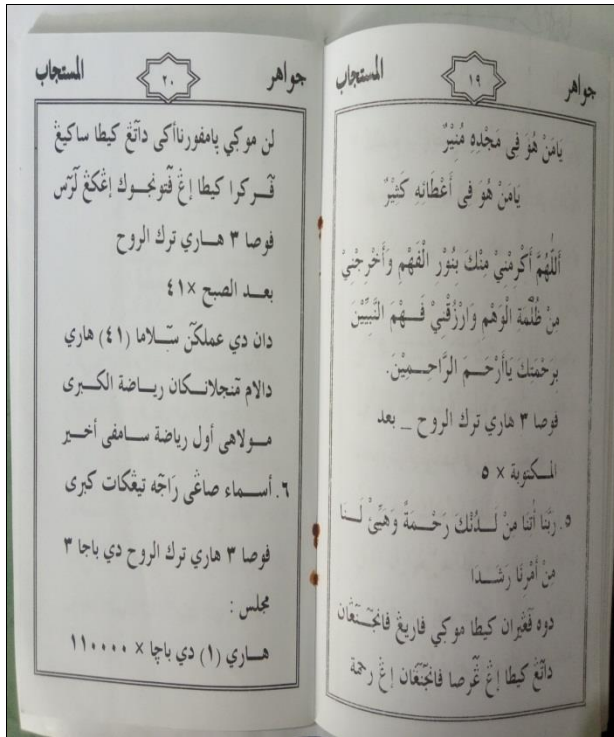 جواهر ١٩ المستجاب
يَامَنْ هُوَ فِى مَجْدِهِ مُنِيْرٌ
يَامَنْ هُوَ فِى أَعْطَائِهِ كَثِيْرٌ
اَللّٰهُمَّ أَكْرِمْنِيْ مِنْكَ بِنُوْرِ الْفَهْمِ وَأَخْرِجْنِيْ
مِنْ ظُلْمَةِ الْوَهْمِ وَارْزُقْنِيْ فَهْمَ النَّبِيِّيْنَ
بِرَحْمَتِكَ يَاأَرْحَمَ الرَّاحِمِيْنَ.
فوصا ٣ هاري ترك الروح _ بعد
المكتوبة × ٥
٥. رَبَّنَا أٰتِنَا مِنْ لَدُنْكَ رَحْمَةً وَهَيِّئْ لَنَا
مِنْ أَمْرِنَا رَشَدَا
دوه ڤڠيران كيطا موكي فاريڠ فانجنڠان
داتڠ كيطا إڠ ڠرصا فانجنڠان إڠ رحمة
جواهر ٢٠ المستجاب
لن موكي پامفورناأكى داتڠ كيطا ساكيڠ
ڤركرا كيطا إڠ ڤتونجوك إڠكڠ لرس
فوصا ٣ هاري ترك الروح
بعد الصبح ×٤١
دان دي عملكن سلاما (٤١) هاري
دالام منجلانكان رياضة الكبرى
مولاهى أول رياضة سامفى أخير
٦. أسماء صاغى راجه تيڠكات كبرى
فوصا ٣ هاري ترك الروح دي باجا ٣
مجلس :
هاري (١) دي باچا × ١١٠٠٠٠